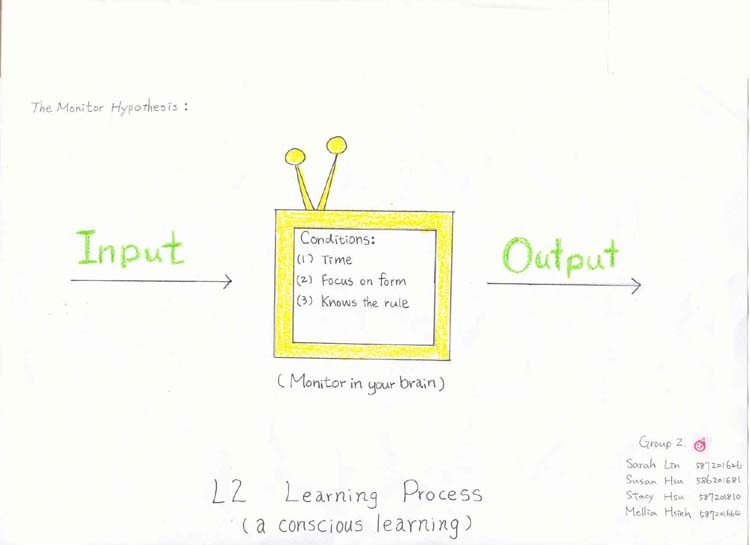 The Monitor Hypothesis :
Input
Conditions:
(1) Time
(2) Focus on form
(3) Knows the rule
Output
(Monitor in your brain)
Group 2.
Sarah Lin 587201626
Susan Hsu 586201681
Stacy Hsu 587201810
Mellia Hsieh 587201664
L2 Learning Process
(a conscious learning)